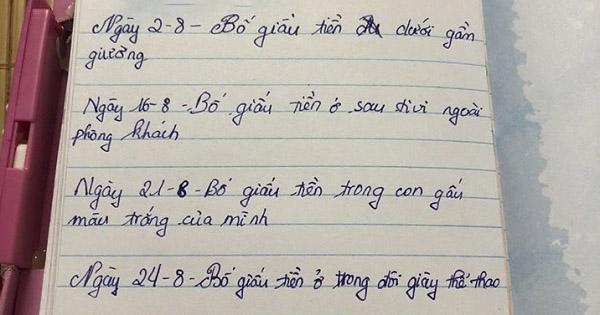 Ngày 2-8 - Bố giấu tiền dưới gần
giường
Ngày 16-8 - Bố giấu tiền ở sau tivi ngoài
phòng khách
Ngày 21-8 - Bố giấu tiền trong con gấu
màu trắng của mình
Ngày 24-8 - Bố giấu tiền ở trong đôi giày thể thao